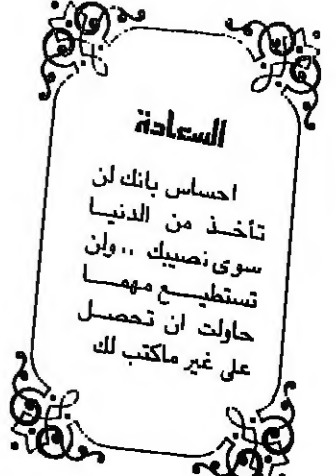 السعادة
احساس بانك لن
تأخذ من الدنيا
سوى نصيبك .. ولن
تستطيع مهما
حاولت ان تحصل
على غير ماكتب لك